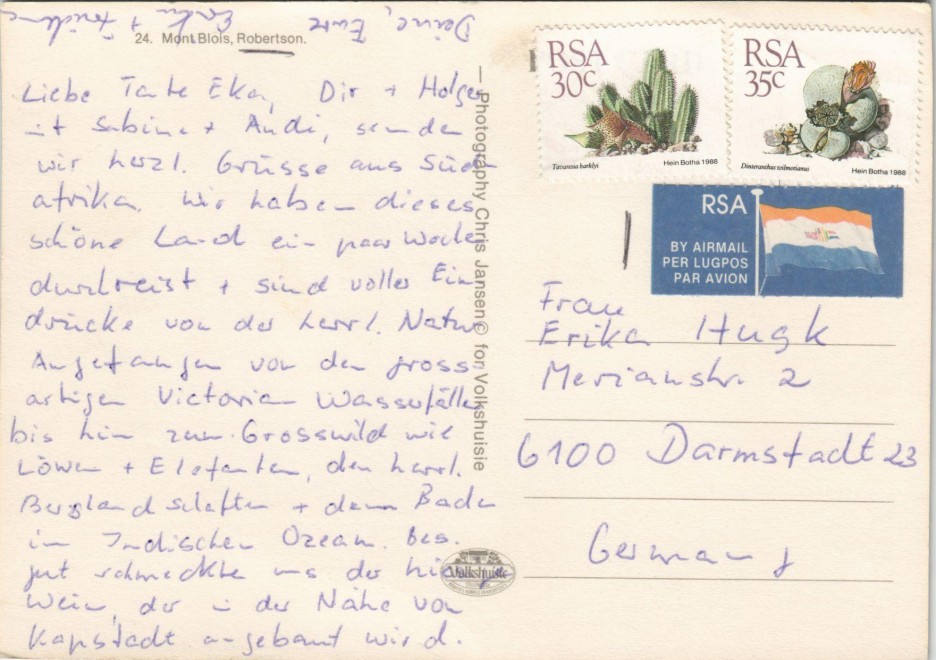 24. Mont Blois, Robertson.
Liebe Tante Eka, Dir + Holger
mit Sabine + Andi, senden
wir herzl. Grüsse aus Süd-
afrika. Wir haben dieses
schöne Land ein paar Wochen
durchreist + sind voller Ein-
drücke von der herrl. Natur
Angefangen von den gross-
artigen Victoria Wasserfällen
bis hin zum Grosswild wie
Löwen + Elefanten, den herrl.
Berglandschaften + dem Baden
im Indischen Ozean. Bes.
gut schmeckte uns der hies.
Wein, der in der Nähe von
Kapstadt angebaut wird.
Deine, Eure
Photography Chris Jansen © for Volkshuisie
Volkshuisie
RSA
30c
Tavaresia barklyi
Hein Botha 1988
RSA
35c
Dinteranthus wilmotianus
Hein Botha 1988
RSA
BY AIRMAIL
PER LUGPOS
PAR AVION
Frau
Erika Hugk
Merianstr. 2
6100 Darmstadt 23
Germany